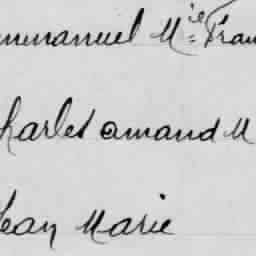 mmanuel Mie Fran
harles amand M
Jean Marie